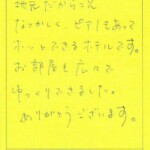 地元だからこそ
なつかしく、ピアノもあって
ホッとできるホテルです。
お部屋も広々で
ゆっくりできました。
ありがとうございます。